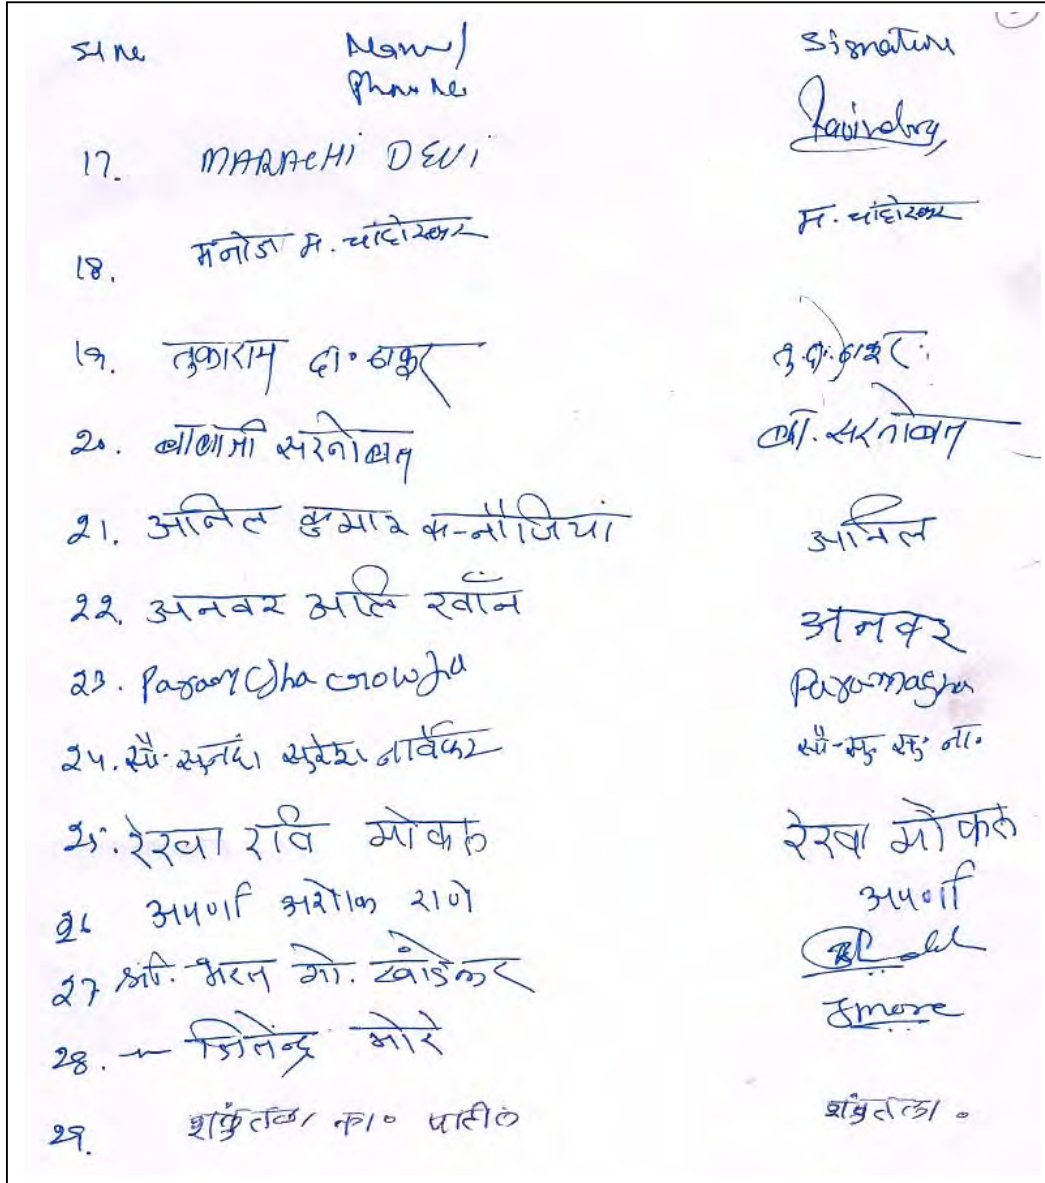 Sl No Name/ Signature
Phone No
17. MARACHI DEVI Ravindra
18. मनोज म. चांदोरकर म. चांदोरकर
19. तुकाराम दा. ठाकूर तु. दा. ठाकूर.
20. बालाजी सरनोबत बा. सरनोबत
21. अनिल कुमार कन्नौजिया अनिल
22. अनवर अलि खाँन अनवर
23. Param
24. सौ. सुनंदा सुरेश नार्वेकर सौ. सु. सु. ना.
25. रेखा रवि मोकल रेखा मोकल
26 अपर्णा अशोक राणे अपर्णा
27 श्री. भरत गो. खांडेकर
28. — जितेन्द्र मोरे Jmore
29. शकुंतला का० पाटील शकुंतला०